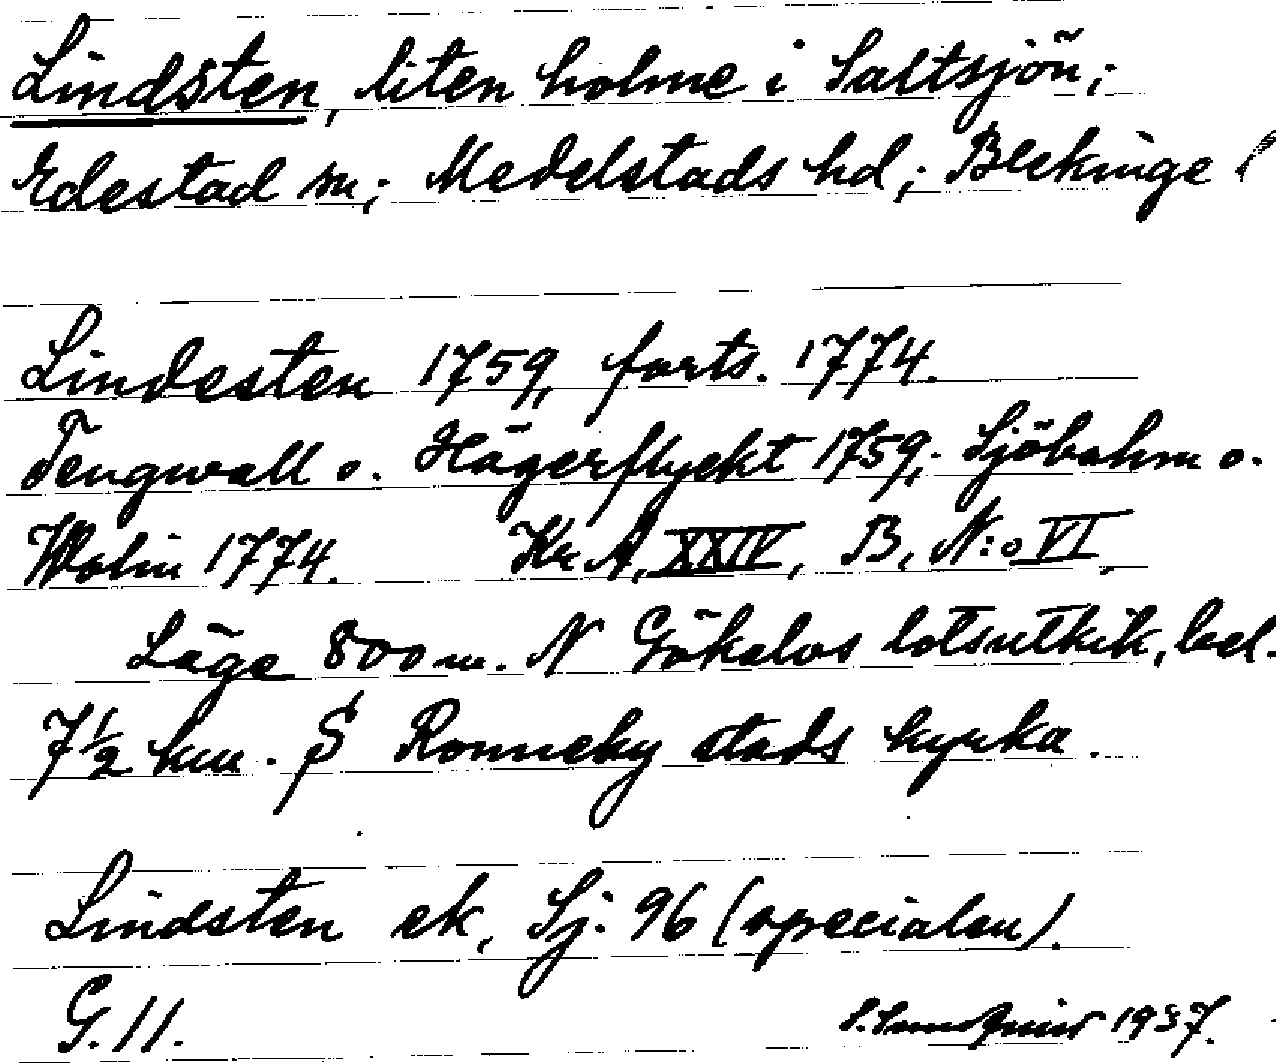 Lindsten, liten holme i Saltsjön;
Edestad sn; Medelstads hd; Blekinge l
Lindesten 1759, forts. 1774.
Tengwall o. Hägerflyckt 1759; Sjöbohm o.
Wolin 1774. Kr. A, XXIV, B, N:o VI.
Läge 800 m. N Gökalvs lotsutkik, bel.
7 1/2 km. S Ronneby stads kyrka.
Lindsten ek, Sj. 96 (specialen).
G. 11. 1937.